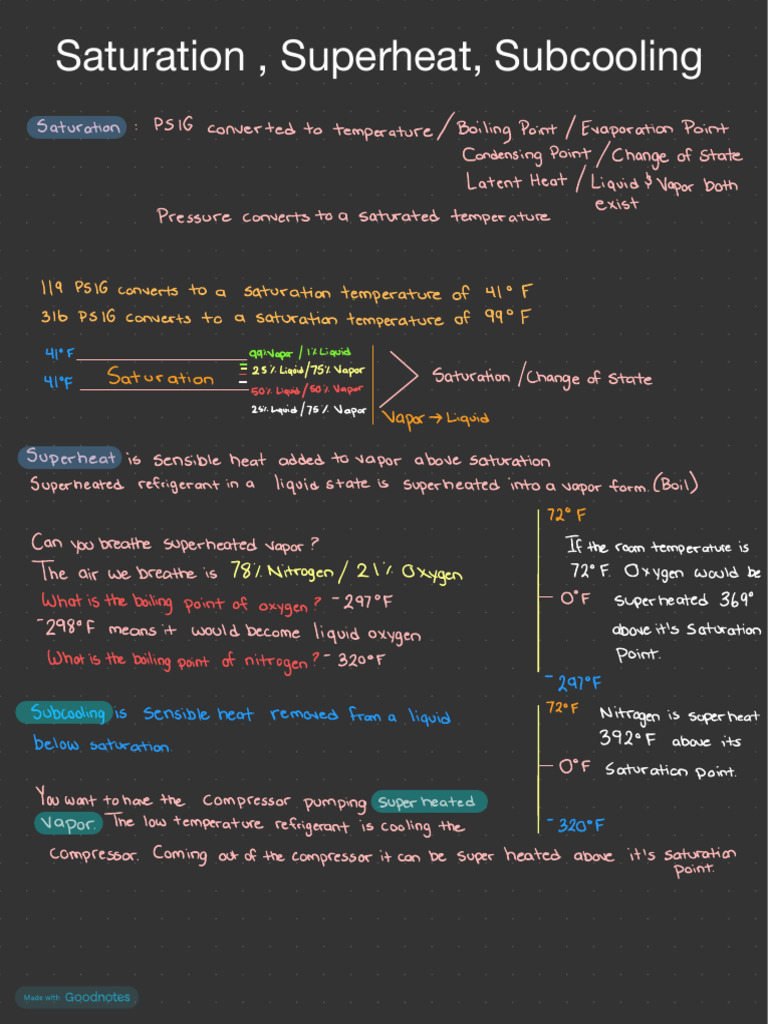 Saturation , Superheat, Subcooling
Saturation : PSIG converted to temperature / Boiling Point / Evaporation Point
Condensing Point / Change of State
Latent Heat / Liquid & Vapor both
exist
Pressure converts to a saturated temperature
119 PSIG converts to a saturation temperature of 41° F
316 PSIG converts to a saturation temperature of 99° F
41°F
41°F
Saturation
99% Vapor / 1% Liquid
25% Liquid / 75% Vapor
50% Liquid / 50% Vapor
25% Liquid / 75% Vapor
Saturation / Change of State
Vapor → Liquid
Superheat is sensible heat added to vapor above saturation
Superheated refrigerant in a liquid state is superheated into a vapor form. (Boil)
Can you breathe superheated vapor?
The air we breathe is 78% Nitrogen / 21% Oxygen
What is the boiling point of oxygen? -297°F
-298°F means it would become liquid oxygen
What is the boiling point of nitrogen? -320°F
72° F
If the room temperature is
72°F. Oxygen would be
0°F superheated 369°
above it's Saturation
Point.
-297°F
Subcooling is sensible heat removed from a liquid
below saturation.
72°F Nitrogen is superheat
392°F above its
0°F Saturation point.
-320°F
You want to have the compressor pumping superheated
vapor. The low temperature refrigerant is cooling the
compressor. Coming out of the compressor it can be super heated above it's saturation
point.
Made with Goodnotes